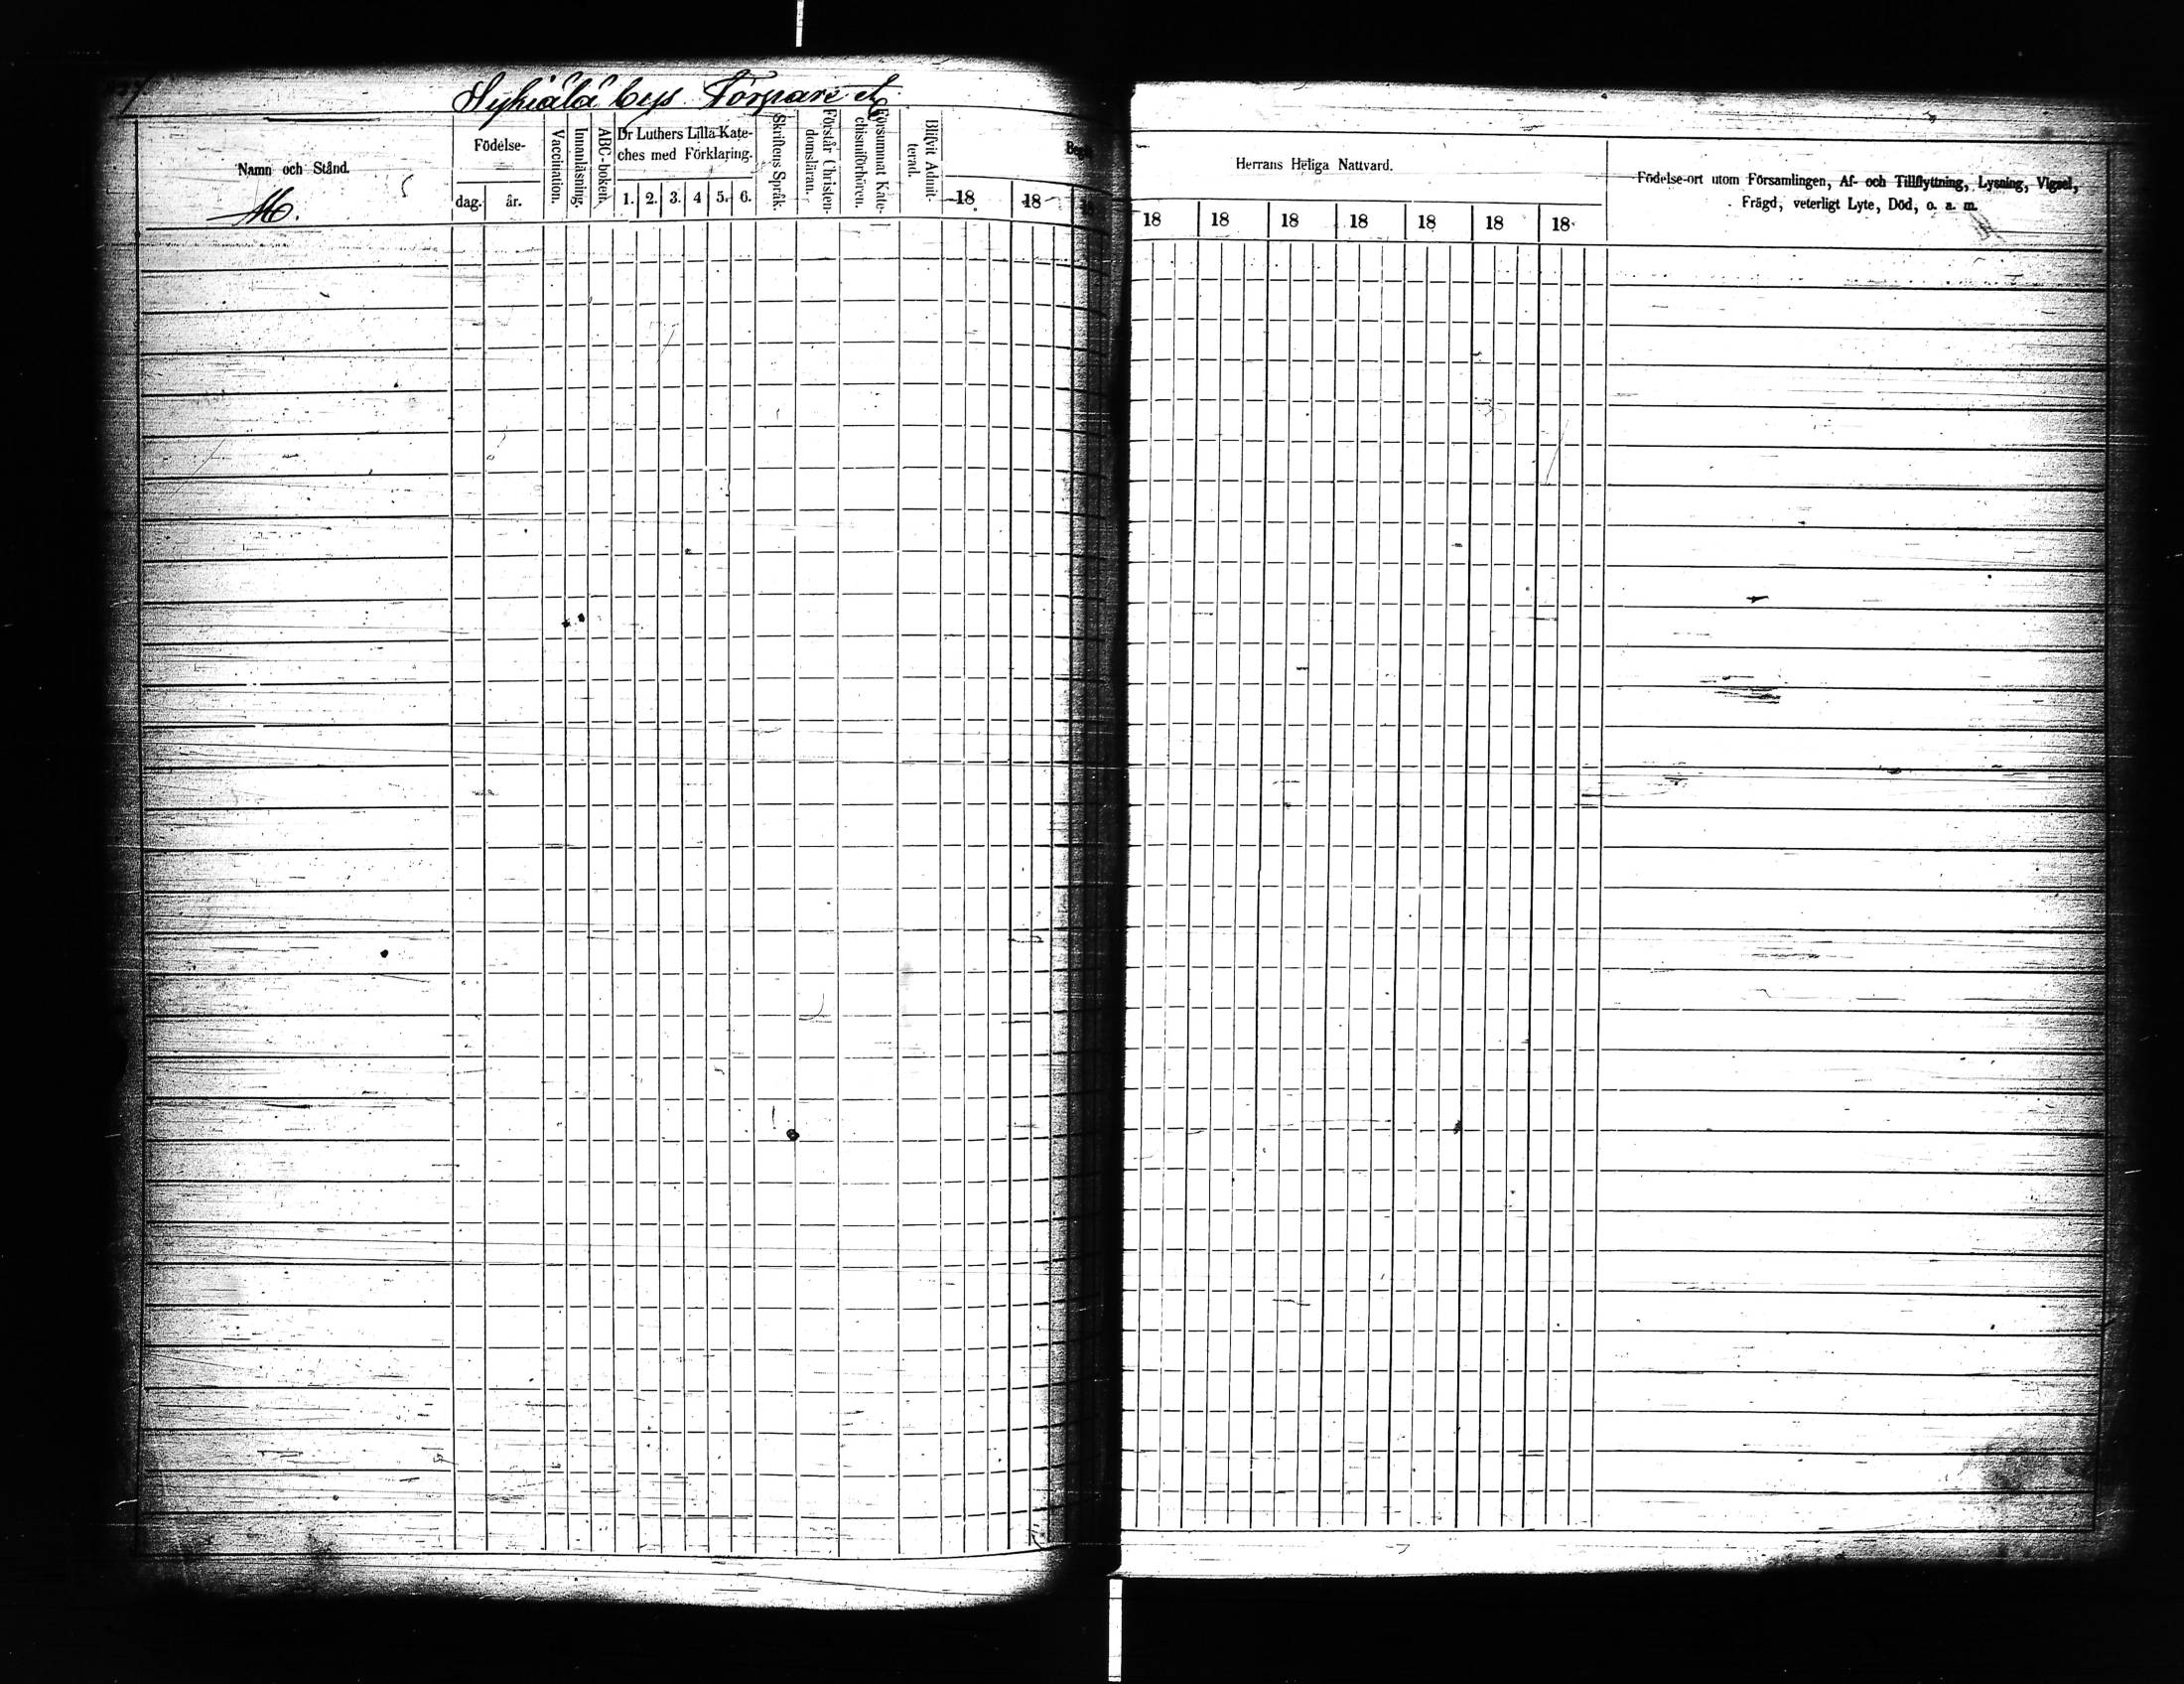 Hyhiälä bys Torpare et
Namn och Stånd.
M.
Födelse-
dag. år.
Vaccination.
Innanläsning.
ABC-boken.
Dr Luthers Lilla Kate-
ches med Förklaring.
1. 2. 3. 4 5. 6.
Skriftens Språk.
Förstår Christen-
domsläran.
Försummat Kate-
chismiförhören.
Blifvit Admit-
terad.
18 18
Herrans Heliga Nattvard.
18 18 18 18 18 18 18
Födelse-ort utom Församlingen, Af- och Tillflyttning, Lysning, Vigsel,
Frägd, veterligt Lyte, Död, o. a. m.